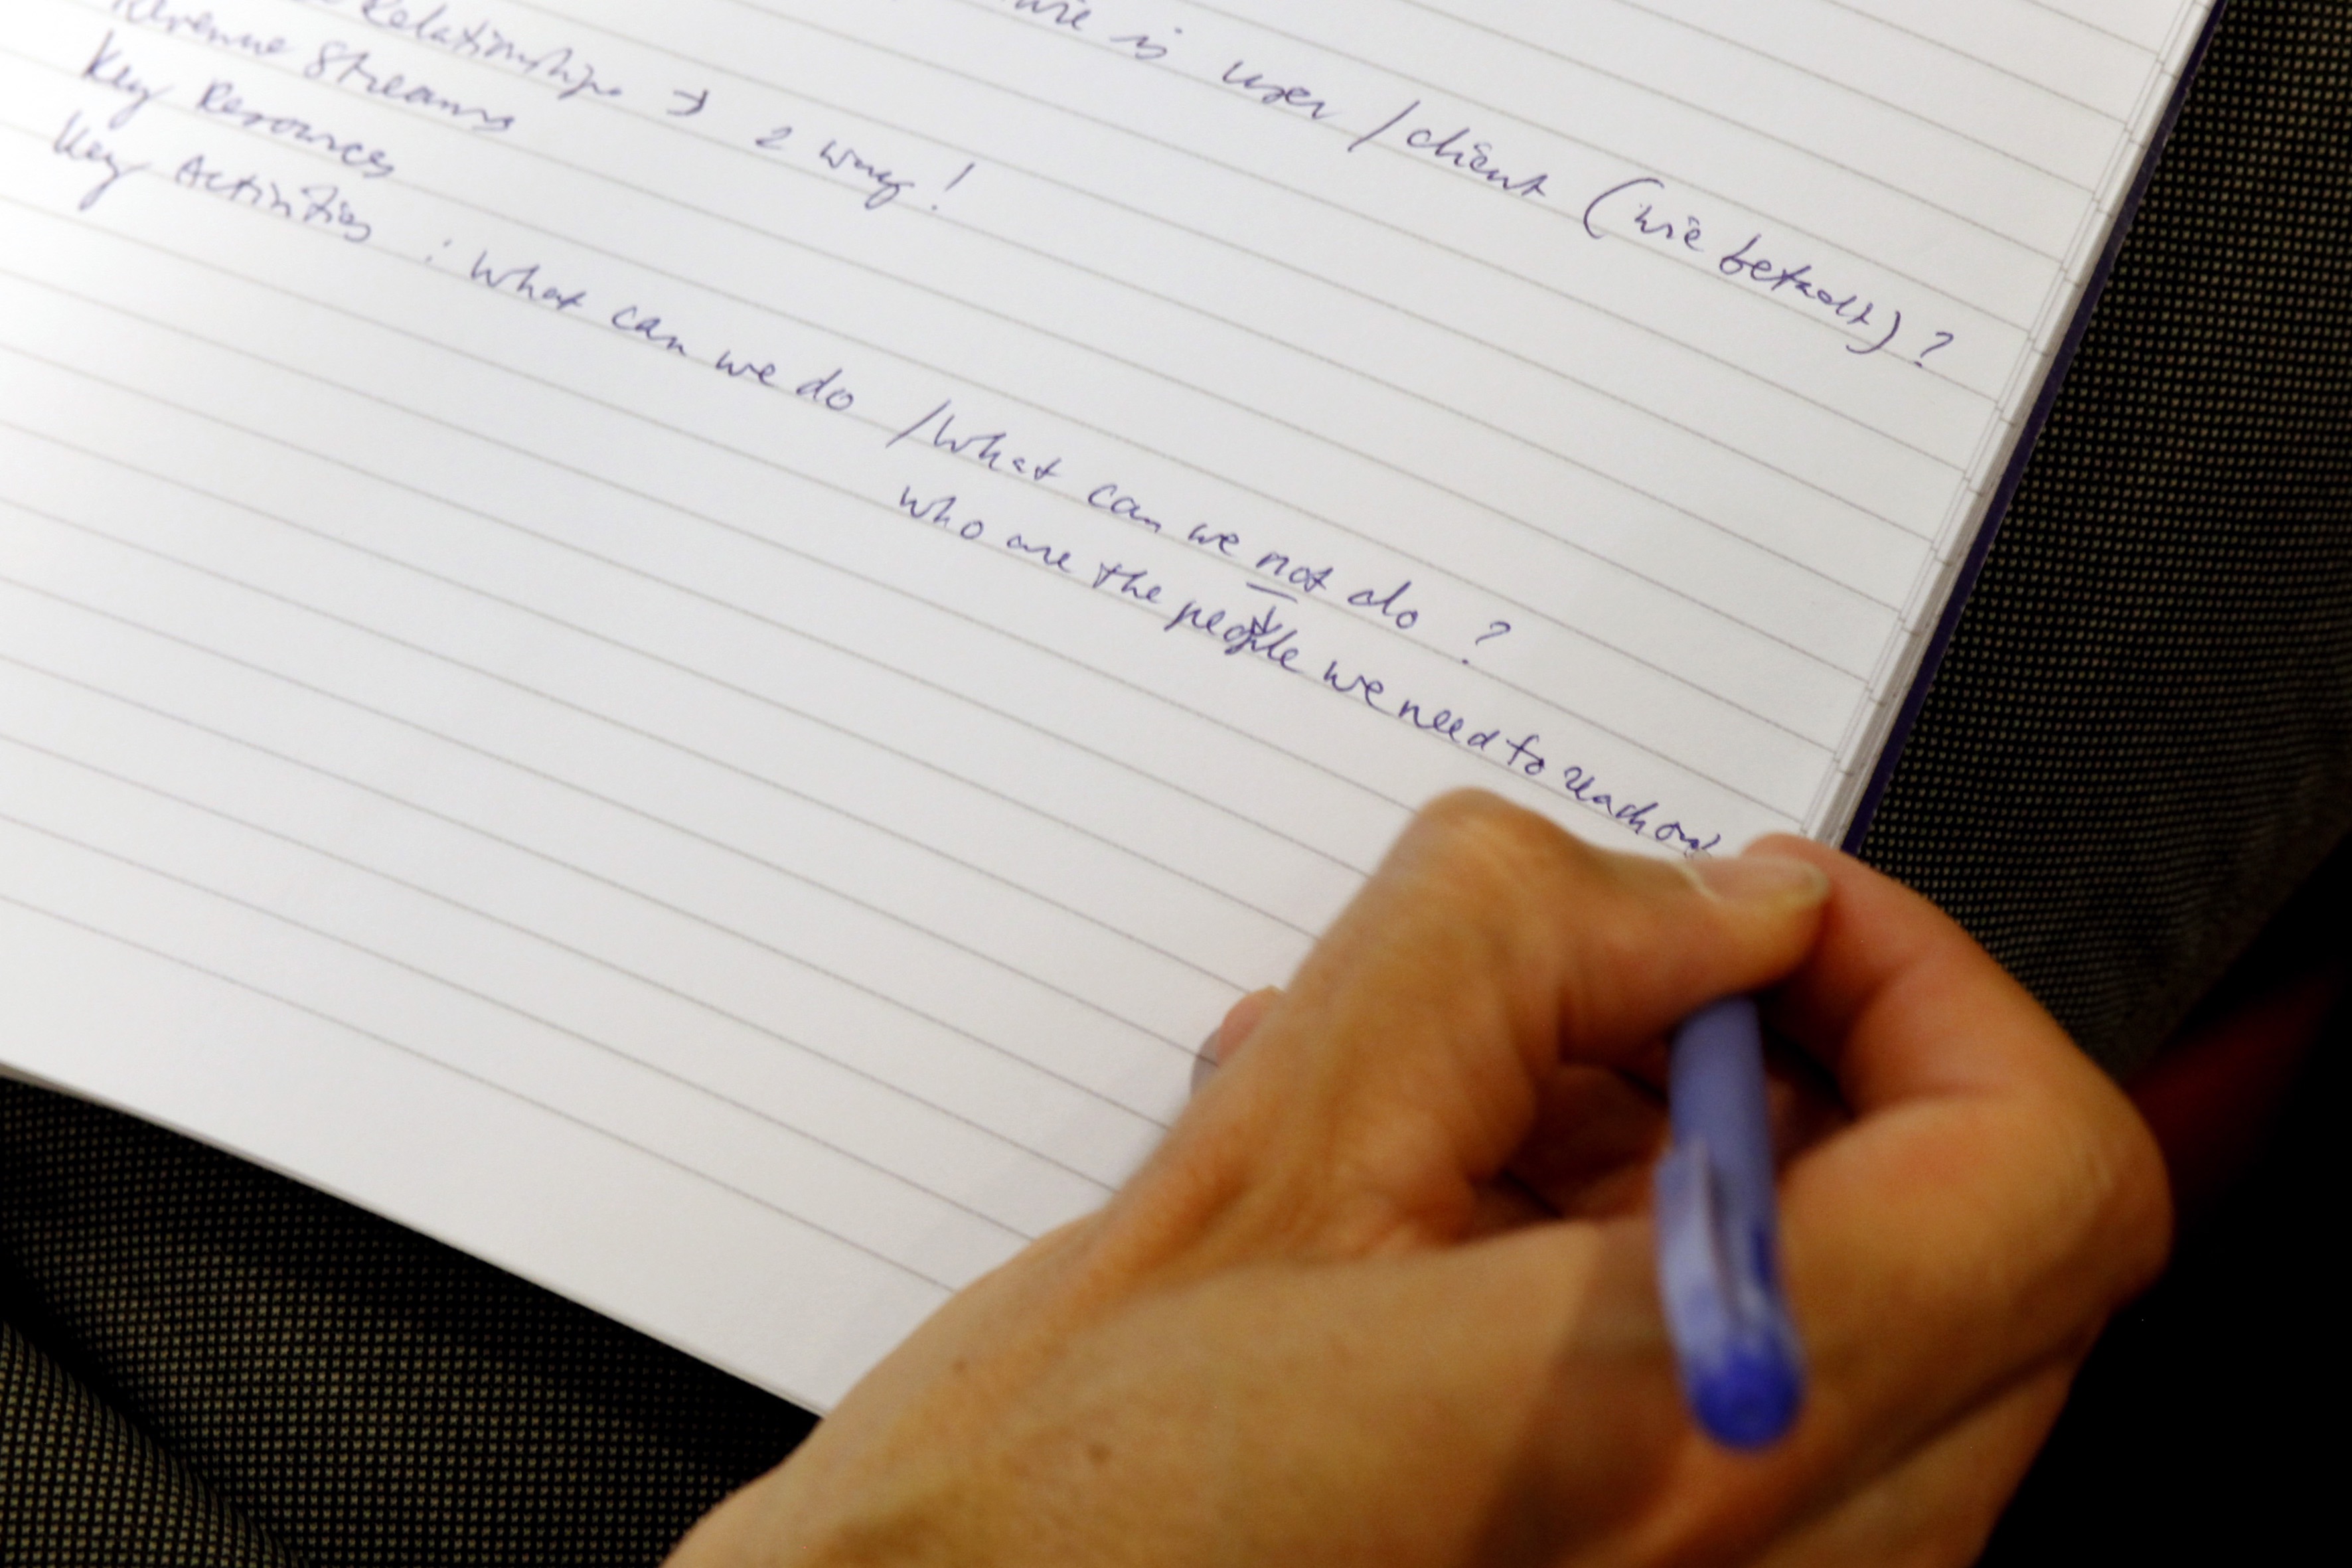 wie is user / client (wie betaalt) ?
Relationships → 2 way !
Revenue Streams
Key Resources
Key Activities : What can we do / What can we not do ?
↓
who are the people we need to reach out